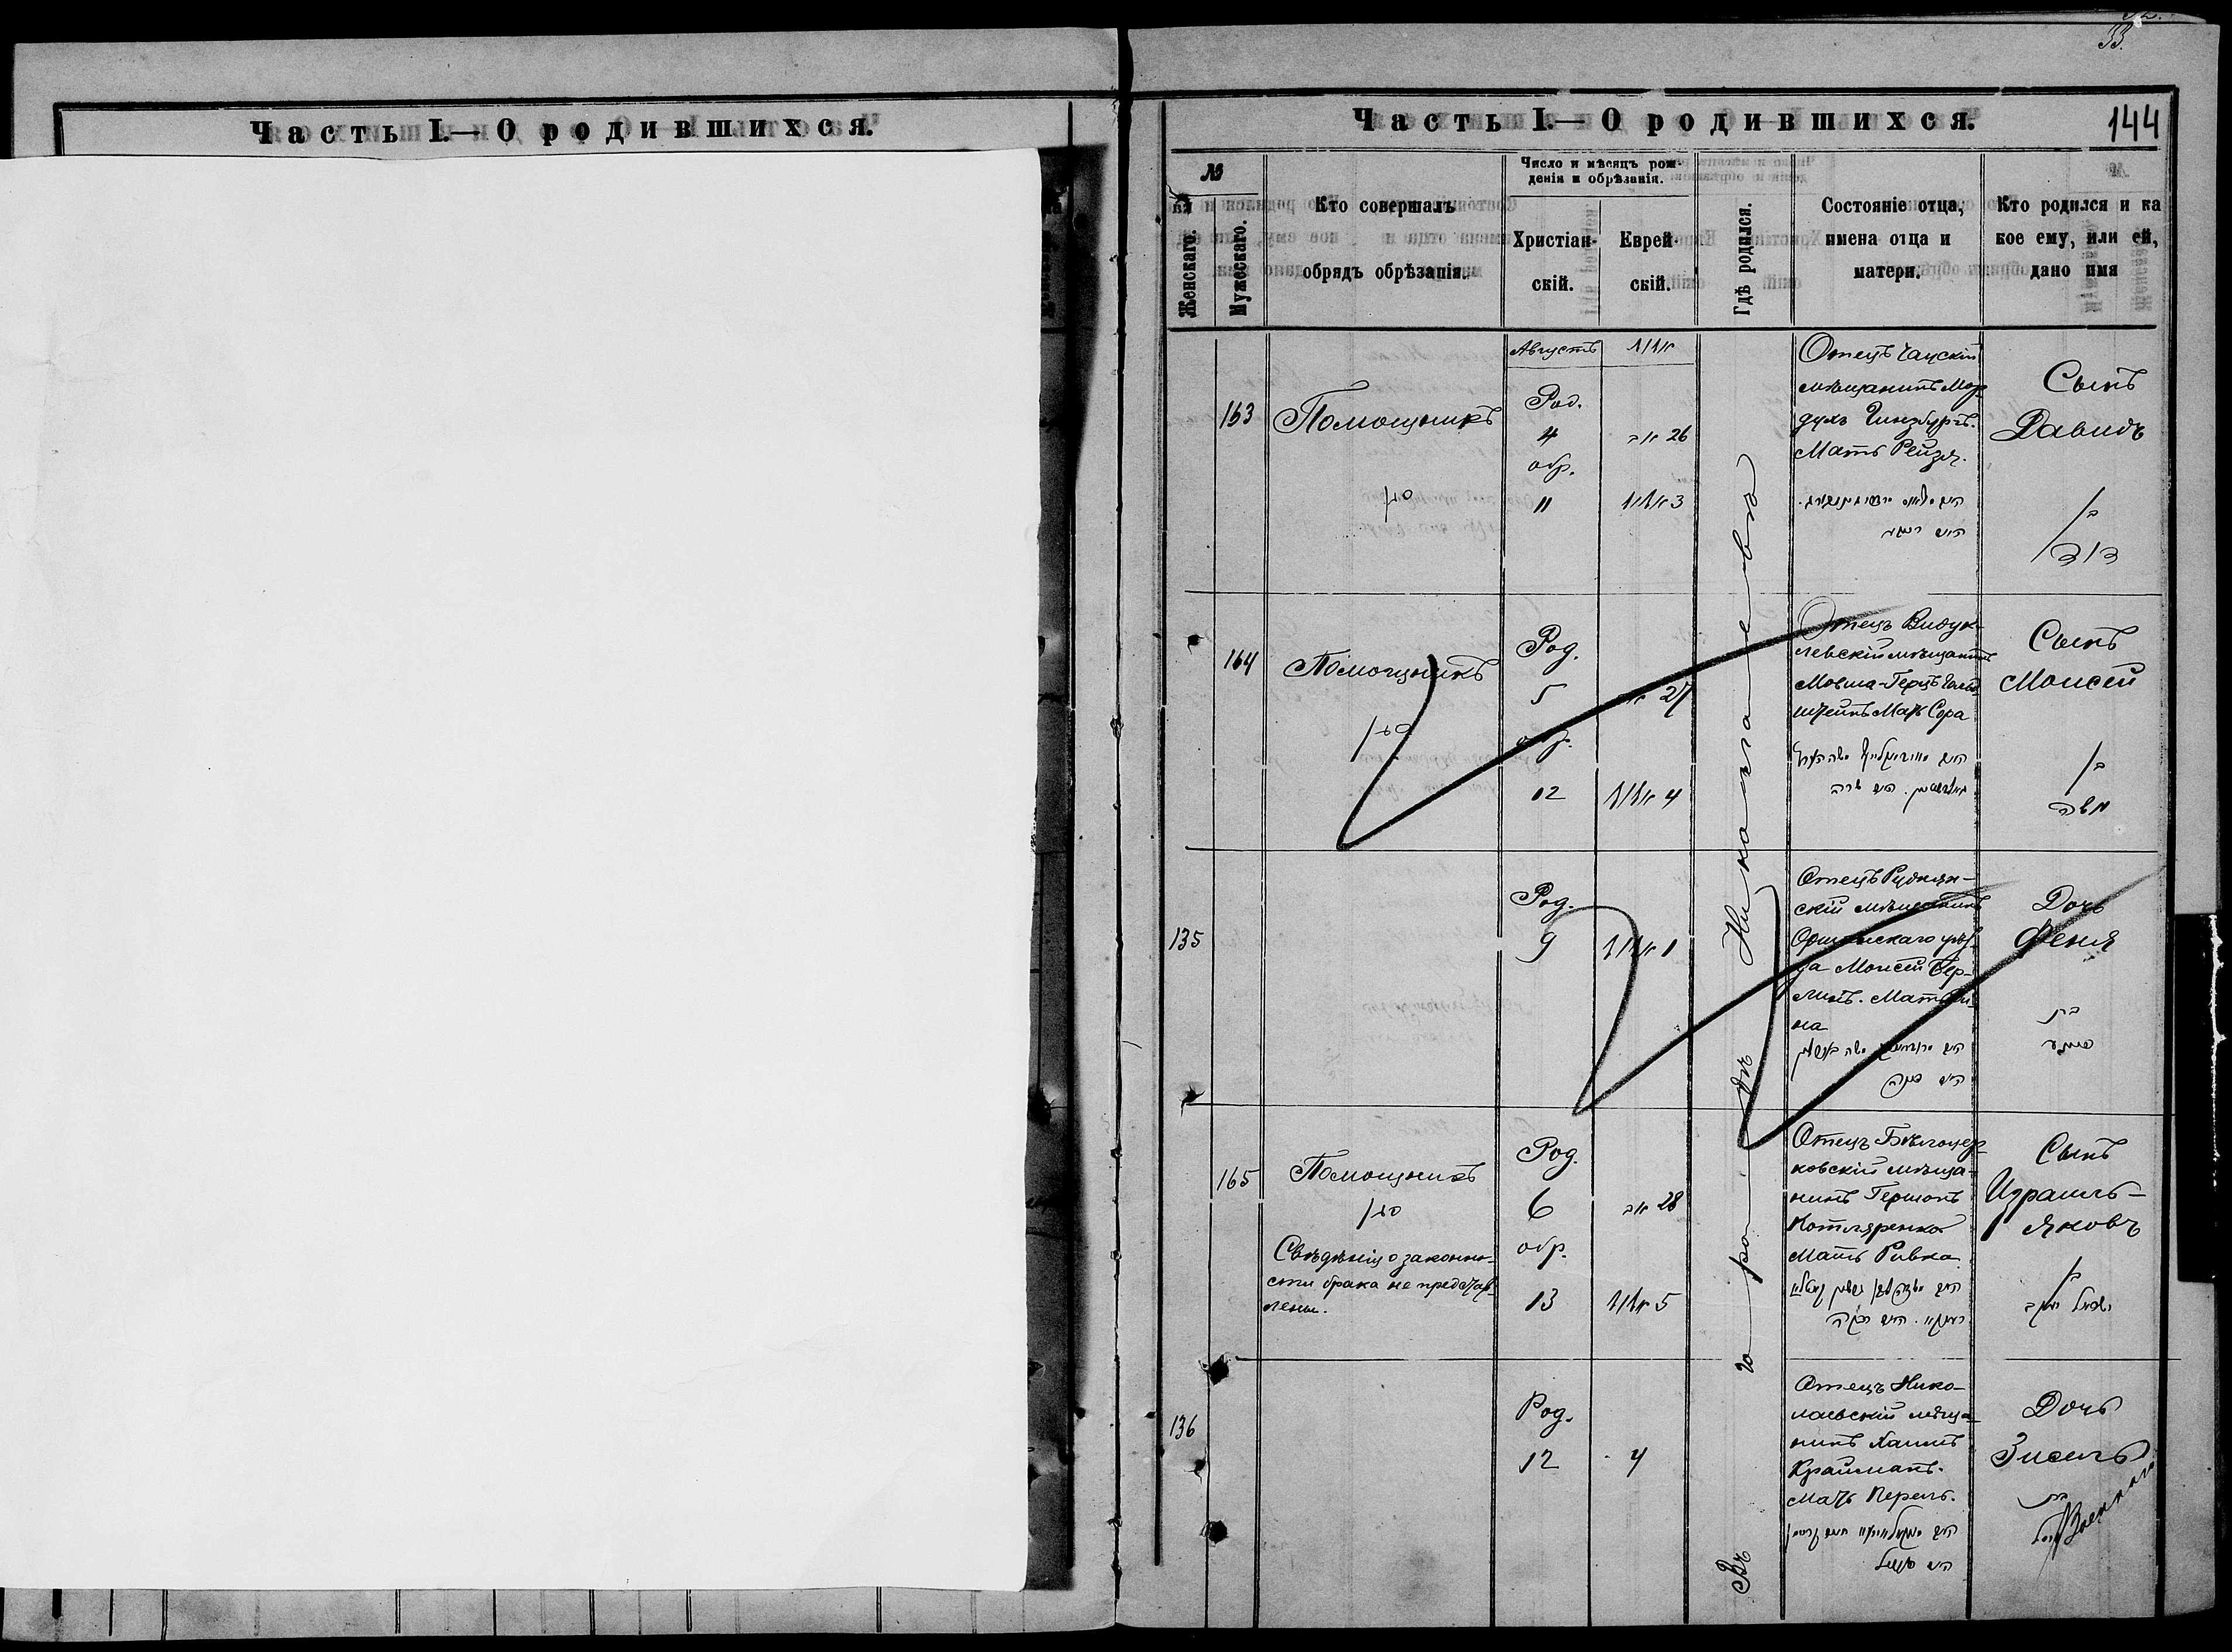 33.
Часть I.—О родившихся.
Часть I.—О родившихся.
144
№
Женскаго.
Мужескаго.
Кто совершалъ
обрядъ обрѣзанія.
Число и мѣсяцъ рож-
денія и обрѣзанія.
Христіан-
скій.
Еврей-
скій.
Гдѣ родился.
Состояніе отца,
имена отца и
матери.
Кто родился и ка
кое ему, или ей,
дано имя
Въ городѣ Николаевѣ
163
Помощникъ
Августъ
Род.
4
обр.
11
26
3
Отецъ Чаускій
мѣщанинъ Мор
духъ Гинзбургъ.
Мать Рейзя.
Сынъ
Давидъ
בן
דוד
164
Помощникъ
Род.
5
обр.
12
27
4
Отецъ Видук-
левскій мѣщанинъ
Мовша-Герцъ Голд-
штейнъ Мать Сора
Сынъ
Моисей
בן
משה
135
Род.
9
1
Отецъ Руднян-
скій мѣщанинъ
Оршанскаго уѣз-
да Моисей Бер-
линъ. Мать
на
Дочь
Феня
בת
165
Помощникъ
Свѣдѣнія о законно-
сти брака не представ-
лены.
Род.
6
обр.
13
28
5
Отецъ Бѣлоцер-
ковскій мѣща-
нинъ Гершонъ
Котляренко
Мать Ривка.
Сынъ
Израиль-
Яковъ
בן
ישראל יעקב
136
Род.
12
4
Отецъ Нико-
лаевскій мѣща-
нинъ Хаимъ
Крайманъ.
Мать Перель.
Дочь
Зисель
בת